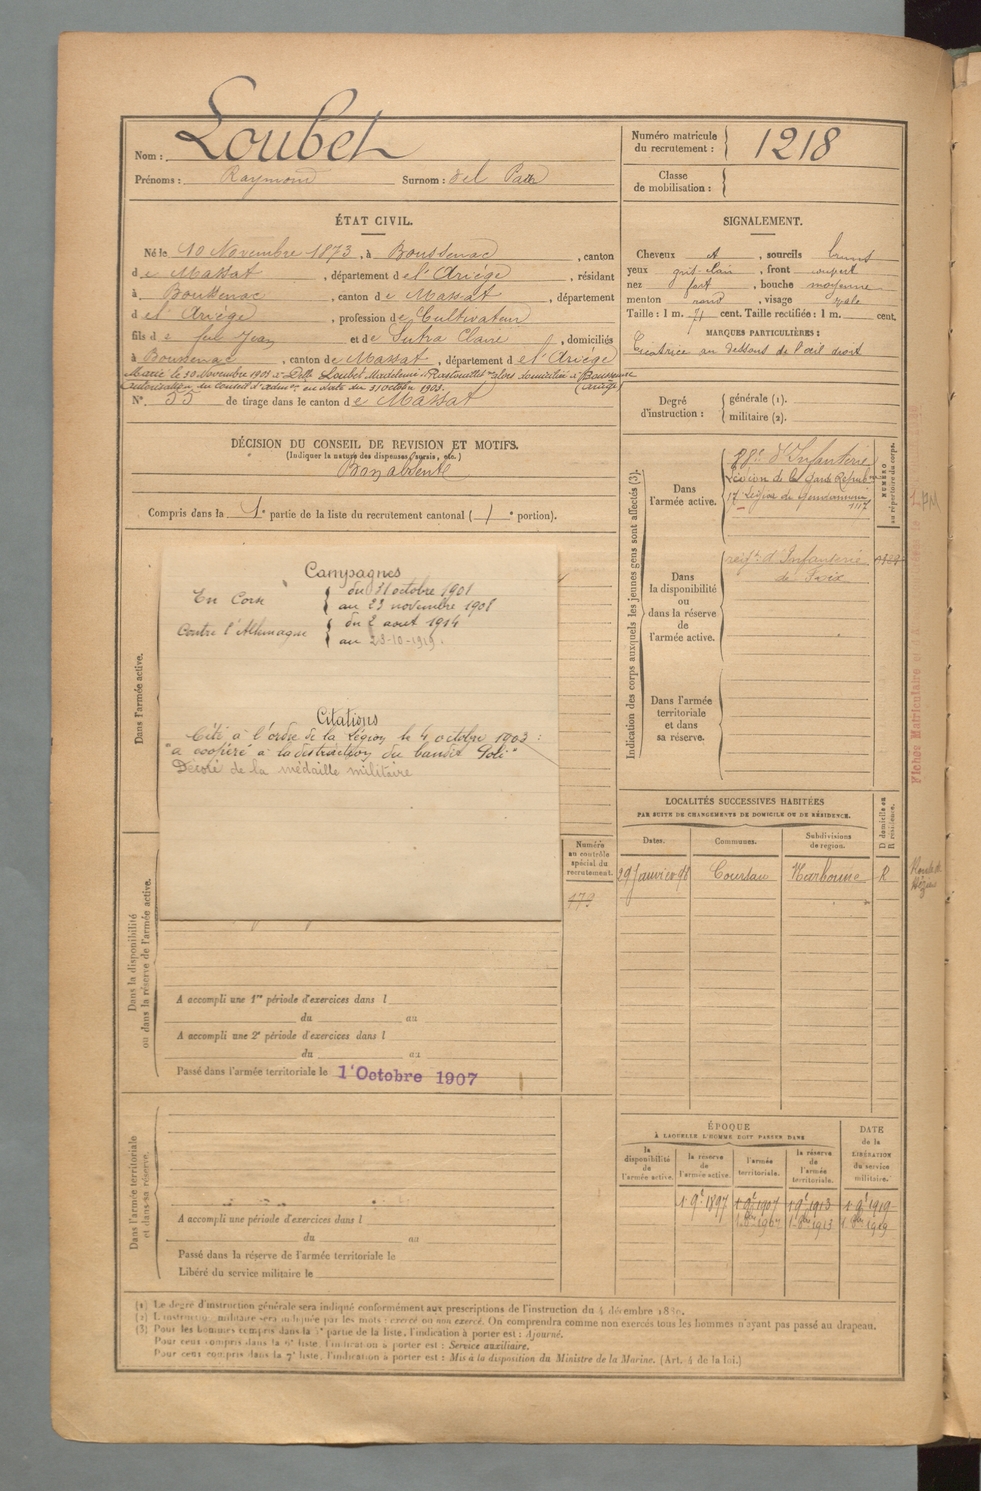 Nom : Loubet
Prénoms : Raymond Surnom : del
Numéro matricule
du recrutement : 1218
Classe
de mobilisation :
ÉTAT CIVIL.
Né le 10 Novembre 1873, à Boussenac, canton
de Massat, département de l'Ariège, résidant
à Boussenac, canton de Massat, département
de l'Ariège, profession de Cultivateur
fils de feu Jean et de Sutra Claire, domiciliés
à Boussenac, canton de Massat, département de l'Ariège
Marié le 30 Novembre 1903 à Delle Loubet Madeleine domiciliée à Boussenac
autorisation du Conseil d'admon en date du 31 octobre 1903. (Ariège)
N° 55 de tirage dans le canton de Massat
SIGNALEMENT.
Cheveux et, sourcils bruns
yeux gris clair, front
nez fort, bouche moyenne
menton rond, visage ovale
Taille : 1 m. 71 cent. Taille rectifiée : 1 m. cent.
MARQUES PARTICULIÈRES :
Cicatrice au dessous de l'œil droit
Degré
d'instruction :
générale (1).
militaire (2).
DÉCISION DU CONSEIL DE REVISION ET MOTIFS.
(Indiquer la nature des dispenses, sursis, etc.)
Bon absent
Compris dans la 1e partie de la liste du recrutement cantonal ( 1e portion).
Indication des corps auxquels les jeunes gens sont affectés (3).
Dans
l'armée active.
88e d'Infanterie
Légion de la Garde Répubne
17 Légion de Gendarmerie
1117
NUMÉRO
au répertoire du corps.
Dans
la disponibilité
ou
dans la réserve
de
l'armée active.
régt d'Infanterie
de Foix
Dans l'armée
territoriale
et dans
sa réserve.
Dans l'armée active.
Campagnes
En Corse du 31 octobre 1901
au 23 novembre 1908
Contre l'Allemagne du 2 août 1914
au 23-10-1919.
Citations
Cité à l'ordre de la Légion le 4 octobre 1903 :
"a coopéré à la destruction du bandit Poli"
Décoré de la médaille militaire
Dans la disponibilité
ou dans la réserve de l'armée active.
Numéro
au contrôle
spécial du
recrutement.
173
A accompli une 1re période d'exercices dans l
du au
A accompli une 2e période d'exercices dans l
du au
Passé dans l'armée territoriale le 1er Octobre 1907
LOCALITÉS SUCCESSIVES HABITÉES
PAR SUITE DE CHANGEMENTS DE DOMICILE OU DE RÉSIDENCE.
Dates. Communes. Subdivisions
de région. D domicile ou
R résidence.
29 Janvier 98 Coursan Narbonne R
Fiches Matriculaire et
Dans l'armée territoriale
et dans sa réserve.
A accompli une période d'exercices dans l
du au
Passé dans la réserve de l'armée territoriale le
Libéré du service militaire le
ÉPOQUE
À LAQUELLE L'HOMME DOIT PASSER DANS
la
disponibilité
de
l'armée active.
la réserve
de
l'armée active.
l'armée
territoriale.
la réserve
de
l'armée
territoriale.
DATE
de la
LIBÉRATION
du service
militaire.
1 9e 1897 1 9e 1907 1 9e 1913 1 9e 1919
1 8bre 1907 1 8bre 1913 1 8bre 1919
(1) Le degré d'instruction générale sera indiqué conformément aux prescriptions de l'instruction du 4 décembre 1889.
(2) L'instruction militaire sera indiquée par les mots : exercé ou non exercé. On comprendra comme non exercés tous les hommes n'ayant pas passé au drapeau.
(3) Pour les hommes compris dans la 5e partie de la liste, l'indication à porter est : Ajourné.
Pour ceux compris dans la 6e liste, l'indication à porter est : Service auxiliaire.
Pour ceux compris dans la 7e liste, l'indication à porter est : Mis à la disposition du Ministre de la Marine. (Art. 4 de la loi.)